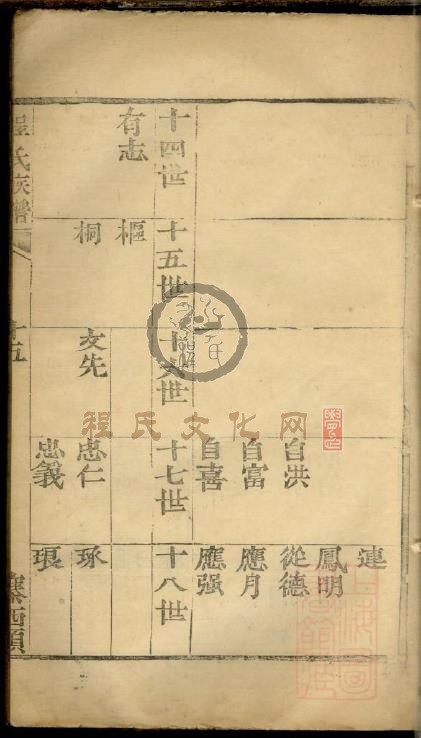 連
鳳明
從德
應月
應强
自洪
自富
自喜
十四世
十五世
十六世
十七世
十八世
有志
樞
桐
友先
忠仁
琢
忠義
程氏族譜
十五
寨西頭
程氏文化网